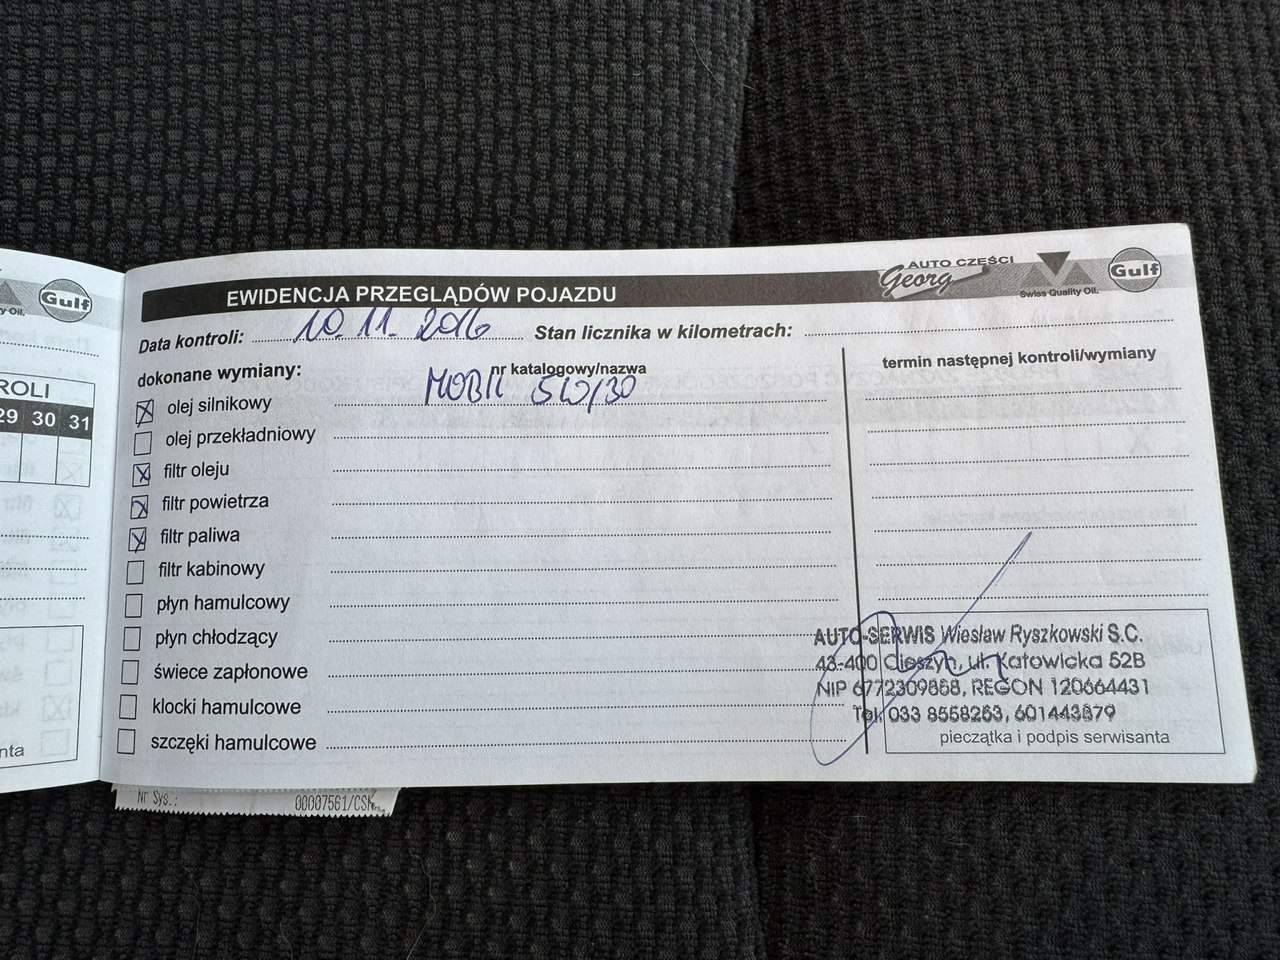 y Oil.
Gulf
ROLI
29 30 31
nta
AUTO CZĘŚCI
Georg
Swiss Quality Oil.
Gulf
EWIDENCJA PRZEGLĄDÓW POJAZDU
Data kontroli: 10.11.2016 Stan licznika w kilometrach:
dokonane wymiany: nr katalogowy/nazwa termin następnej kontroli/wymiany
olej silnikowy MOBIL 5W/30
olej przekładniowy
filtr oleju
filtr powietrza
filtr paliwa
filtr kabinowy
płyn hamulcowy
płyn chłodzący
świece zapłonowe
klocki hamulcowe
szczęki hamulcowe
AUTO-SERWIS Wiesław Ryszkowski S.C.
43-400 Cieszyn, ul. Katowicka 52B
NIP 6772309868, REGON 120664431
Tel. 033 8558263, 601443879
pieczątka i podpis serwisanta
Nr Sys.: 00007561/CSK